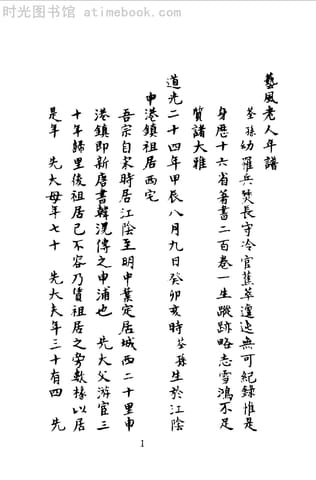 时光图书馆 - atimebook.com
藝風老人年譜
荃孫幼罹兵燹長守冷官蕉萃邅迍無可紀錄惟是
身歷十六省著書二百卷一生蹤跡略志雪鴻不足
質諸大雅
道光二十四年甲辰八月九日癸卯亥時荃孫生於江陰
申港鎮祖居西宅
吾宗自宋時居江陰至明中葉定居城西二十里申
港鎮即新唐書韓滉傳之申浦也 先大父游宦三
十年歸里後祖居已不容乃賃祖居之旁數椽以居
是年 先大母年七十 先大夫年三十有四 先
1